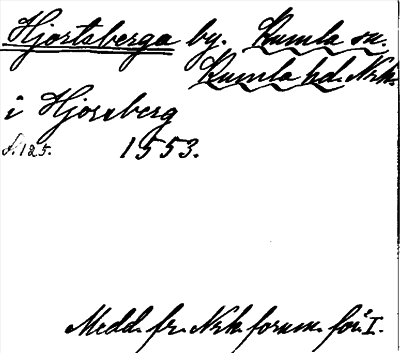 Hjortsberga by. Kumla sn.
Kumla hd. Nrk.
i Hjorzberg
s. 125. 1553.
Medd. fr. Nrk. fornm. för. I.